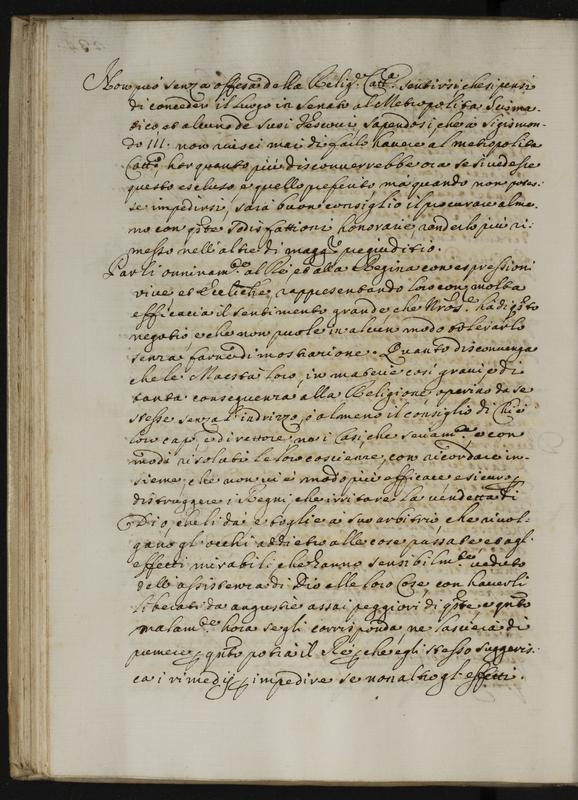 Non può senza offesa della Relig.e Catt.a sentirsi che si pensi
di conceder il luogo in senato al Metropolita Scisma-
tico et alcuno de suoi Vescovi, sapendosi che à Sigismon-
do III. non riuscì mai di farlo havere al metropolita
Catt.o hor quanto più disconverrebbe ora se si vedesse
questo escluso e quello preferito, mà quando non potes-
se impedirsi, sarà buon consiglio il procurar alme-
no con q.te sodisfattioni honorarie renderlo più ri-
messo nell'altre di magg.r pregiuditio.
Parli onninam.te al Rè et alla Regina con espressioni
vive et rappresentando loro con molta
efficacia il sentimento grande che N'ro S.re hà di q.sto
negotio, e che non puole in alcun modo tolerarlo
senza farne dimostratione. Quanto disconvenga
che le Maestà loro, in materie così gravi e di
tanta conseguenza alla Religione operino da se
stesse senza l'indrizzo, ò almeno il consiglio di chi è
loro capo, e direttore ne i casi che
modi le loro coscienze, con ricordare in-
sieme, che non vi è modo più efficace e sicuro p
distruggere i Regni, che irritare la vendetta di
Dio, che li da e toglie à suo arbitrio, che rivol-
gano gl'occhi addietro alle cose passate et agl'
effetti mirabili che hanno sensibilm.te veduto
dell'assistenza di Dio alle loro Case, con haverli
liberati da angustie assai peggiori di q.ste e q.nto
malam.te hora se gli corrisponda, ne lascierà di
premere p q.nto potrà il Rè p che egli stesso suggeris-
ca i rimedij p impedire se non altro gl'effetti.